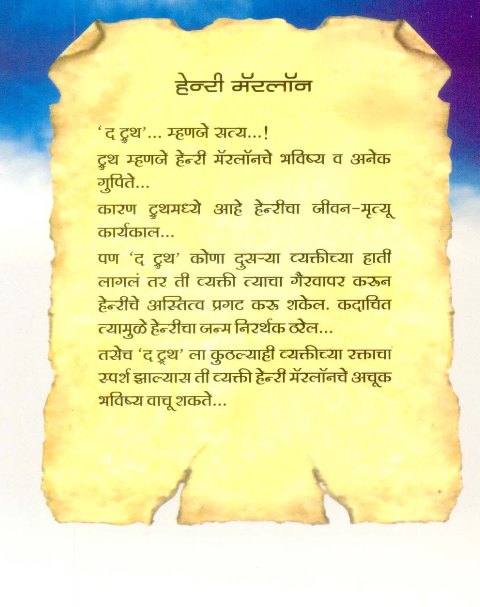 हेन्री मॅरलॉन
'द ट्रुथ'... म्हणजे सत्य...!
ट्रुथ म्हणजे हेन्री मॅरलॉनचे भविष्य व अनेक
गुपिते...
कारण ट्रुथमध्ये आहे हेन्रीचा जीवन-मृत्यू
कार्यकाल...
पण 'द ट्रुथ' कोणा दुसऱ्या व्यक्तीच्या हाती
लागलं तर ती व्यक्ती त्याचा गैरवापर करून
हेन्रीचे अस्तित्व प्रगट करू शकेल. कदाचित
त्यामुळे हेन्रीचा जन्म निरर्थक ठरेल...
तसेच 'द ट्रुथ' ला कुठल्याही व्यक्तीच्या रक्ताचा
स्पर्श झाल्यास ती व्यक्ती हेन्री मॅरलॉनचे अचूक
भविष्य वाचू शकते...